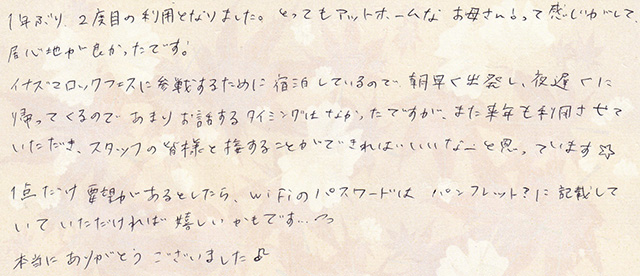 1年ぶり、2度目の利用となりました。とってもアットホームな お母さん!って感じがして、
居心地が良かったです。
イナズマロックフェスに参戦するために宿泊しているので、朝早く出発し、夜遅くに
帰ってくるので あまりお話するタイミングはなかったですが、また来年も利用させて
いただき、スタッフの皆様と接することができればいいなーと思っています☆
1点だけ 要望があるとしたら、wifiのパスワードは パンフレット?に記載して
いて いただければ 嬉しいかもです…
本当に ありがとう ございました♪